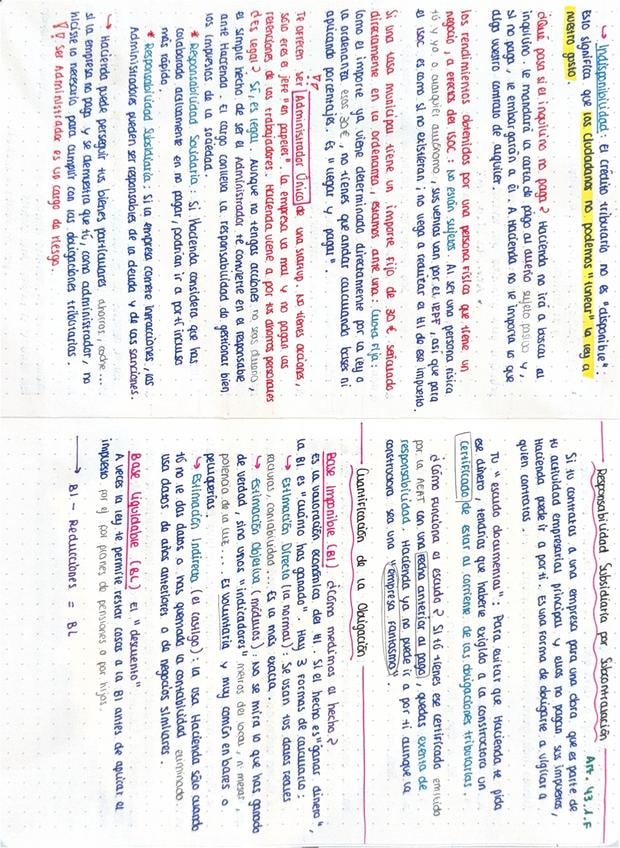 → Indisponibilidad: El crédito tributario no es "disponible".
Esto significa que los ciudadanos no podemos "tunear" la ley a
nuestro gusto.
¿Qué pasa si el inquilino no paga? Hacienda no irá a buscar al
inquilino. Le mandará la carta de pago al dueño sujeto pasivo y,
si no paga, le embargarán a él. A Hacienda no le importa lo que
diga vuestro contrato de alquiler.
Los rendimientos obtenidos por una persona física que tiene un
negocio, a efectos del ISOC: no están sujetos. Al ser una persona física
tú y yo o cualquier autónomo, sus ventas van por el IRPF, así que para
el ISOC es como si no existieran; no llega a realizar el HI de ese impuesto.
Si una tasa municipal tiene un importe fijo de 30 €, señalado
directamente en la ordenanza, estamos ante una: Cuota fija:
como el importe ya viene determinado directamente por la ley o
la ordenanza esos 30€, no tienes que andar calculando bases ni
aplicando porcentajes. Es "llegar y pagar".
Te ofrecen ser Administrador Único de una startup. No tienes acciones,
sólo eres el jefe "en papeles". La empresa va mal y no pagan las
retenciones de los trabajadores. Hacienda viene a por tus ahorros personales
¿Es legal? Sí, es legal. Aunque no tengas acciones no seas dueño,
el simple hecho de ser el Administrador te convierte en el responsable
ante Hacienda. El cargo conlleva la responsabilidad de gestionar bien
los impuestos de la sociedad.
* Responsabilidad Solidaria: Si Hacienda considera que has
colaborado activamente en no pagar, podría ir a por ti incluso
más rápido.
* Responsabilidad Subsidiaria: Si la empresa comete infracciones, los
Administradores pueden ser responsables de la deuda y de las sanciones.
→ Hacienda puede perseguir tus bienes particulares ahorros, coche...
si la empresa no paga y se demuestra que tú, como administrador, no
hiciste lo necesario para cumplir con las obligaciones tributarias.
Ser Administrador es un cargo de riesgo.
Responsabilidad Subsidiaria por Subcontratación
Art. 43.1.F
Si tú contratas a una empresa para una obra que es parte de
tu actividad empresarial principal y ellos no pagan sus impuestos,
Hacienda puede ir a por ti. Es una forma de obligarte a vigilar a
quien contratas.
Tu "escudo documental": Para evitar que Hacienda te pida
ese dinero, tendrías que haberle exigido a la constructora un
certificado de estar al corriente de las obligaciones tributarias.
¿Cómo funciona el escudo? Si tú tienes ese certificado emitido
por la AEAT con una fecha anterior al pago, quedas exento de
responsabilidad. Hacienda ya no puede ir a por ti aunque la
constructora sea una "empresa fantasma".
Cuantificación de la Obligación
Base Imponible (BI) ¿Cómo medimos el hecho?
Es la valoración económica del HI. Si el hecho es "ganar dinero",
la BI es "cuánto has ganado". Hay 3 formas de calcularlo:
→ Estimación Directa (la normal): Se usan tus datos reales
facturas, contabilidad... Es la más exacta.
→ Estimación Objetiva (módulos): No se mira lo que has ganado
de verdad, sino unos "indicadores" metros del local, nº mesas,
potencia de la luz... Es voluntaria y muy común en bares o
peluquerías.
→ Estimación Indirecta (el castigo): La usa Hacienda sólo cuando
tú no le das datos o has quemado la contabilidad eliminado.
Usa datos de años anteriores o de negocios similares.
Base Liquidable (BL) el "descuento"
A veces la ley te permite restar cosas a la BI antes de aplicar el
impuesto por ej por planes de pensiones o por hijos.
→ BI - Reducciones = BL